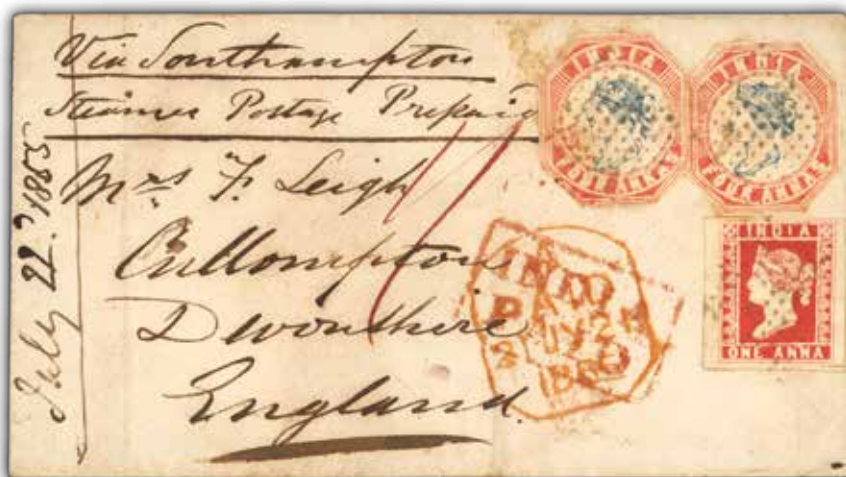 Via Southampton
Steamer Postage Prepaid
Mrs F. Leigh
Cullompton
Devonshire
England
July 22d 1855
INDIA
FOUR ANNAS
INDIA
FOUR ANNAS
INDIA
ONE ANNA
INDIA
PAID